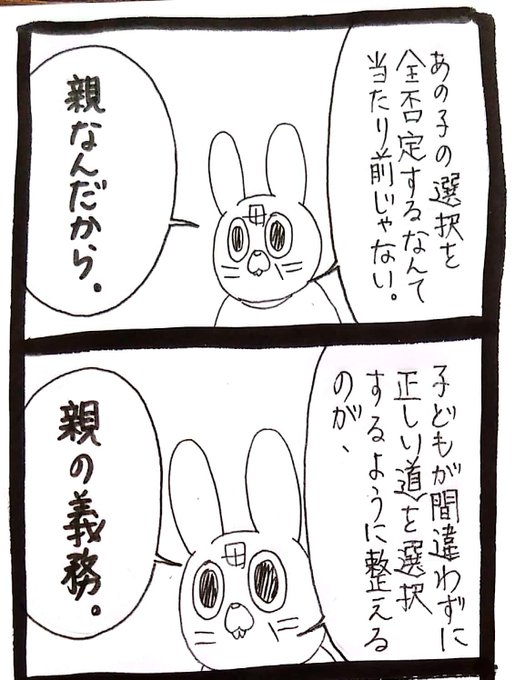 あの子の選択を
全否定するなんて
当たり前じゃない。
親なんだから。
母
子どもが間違わずに
正しい道を選択
するように整える
のが、
親の義務。
母